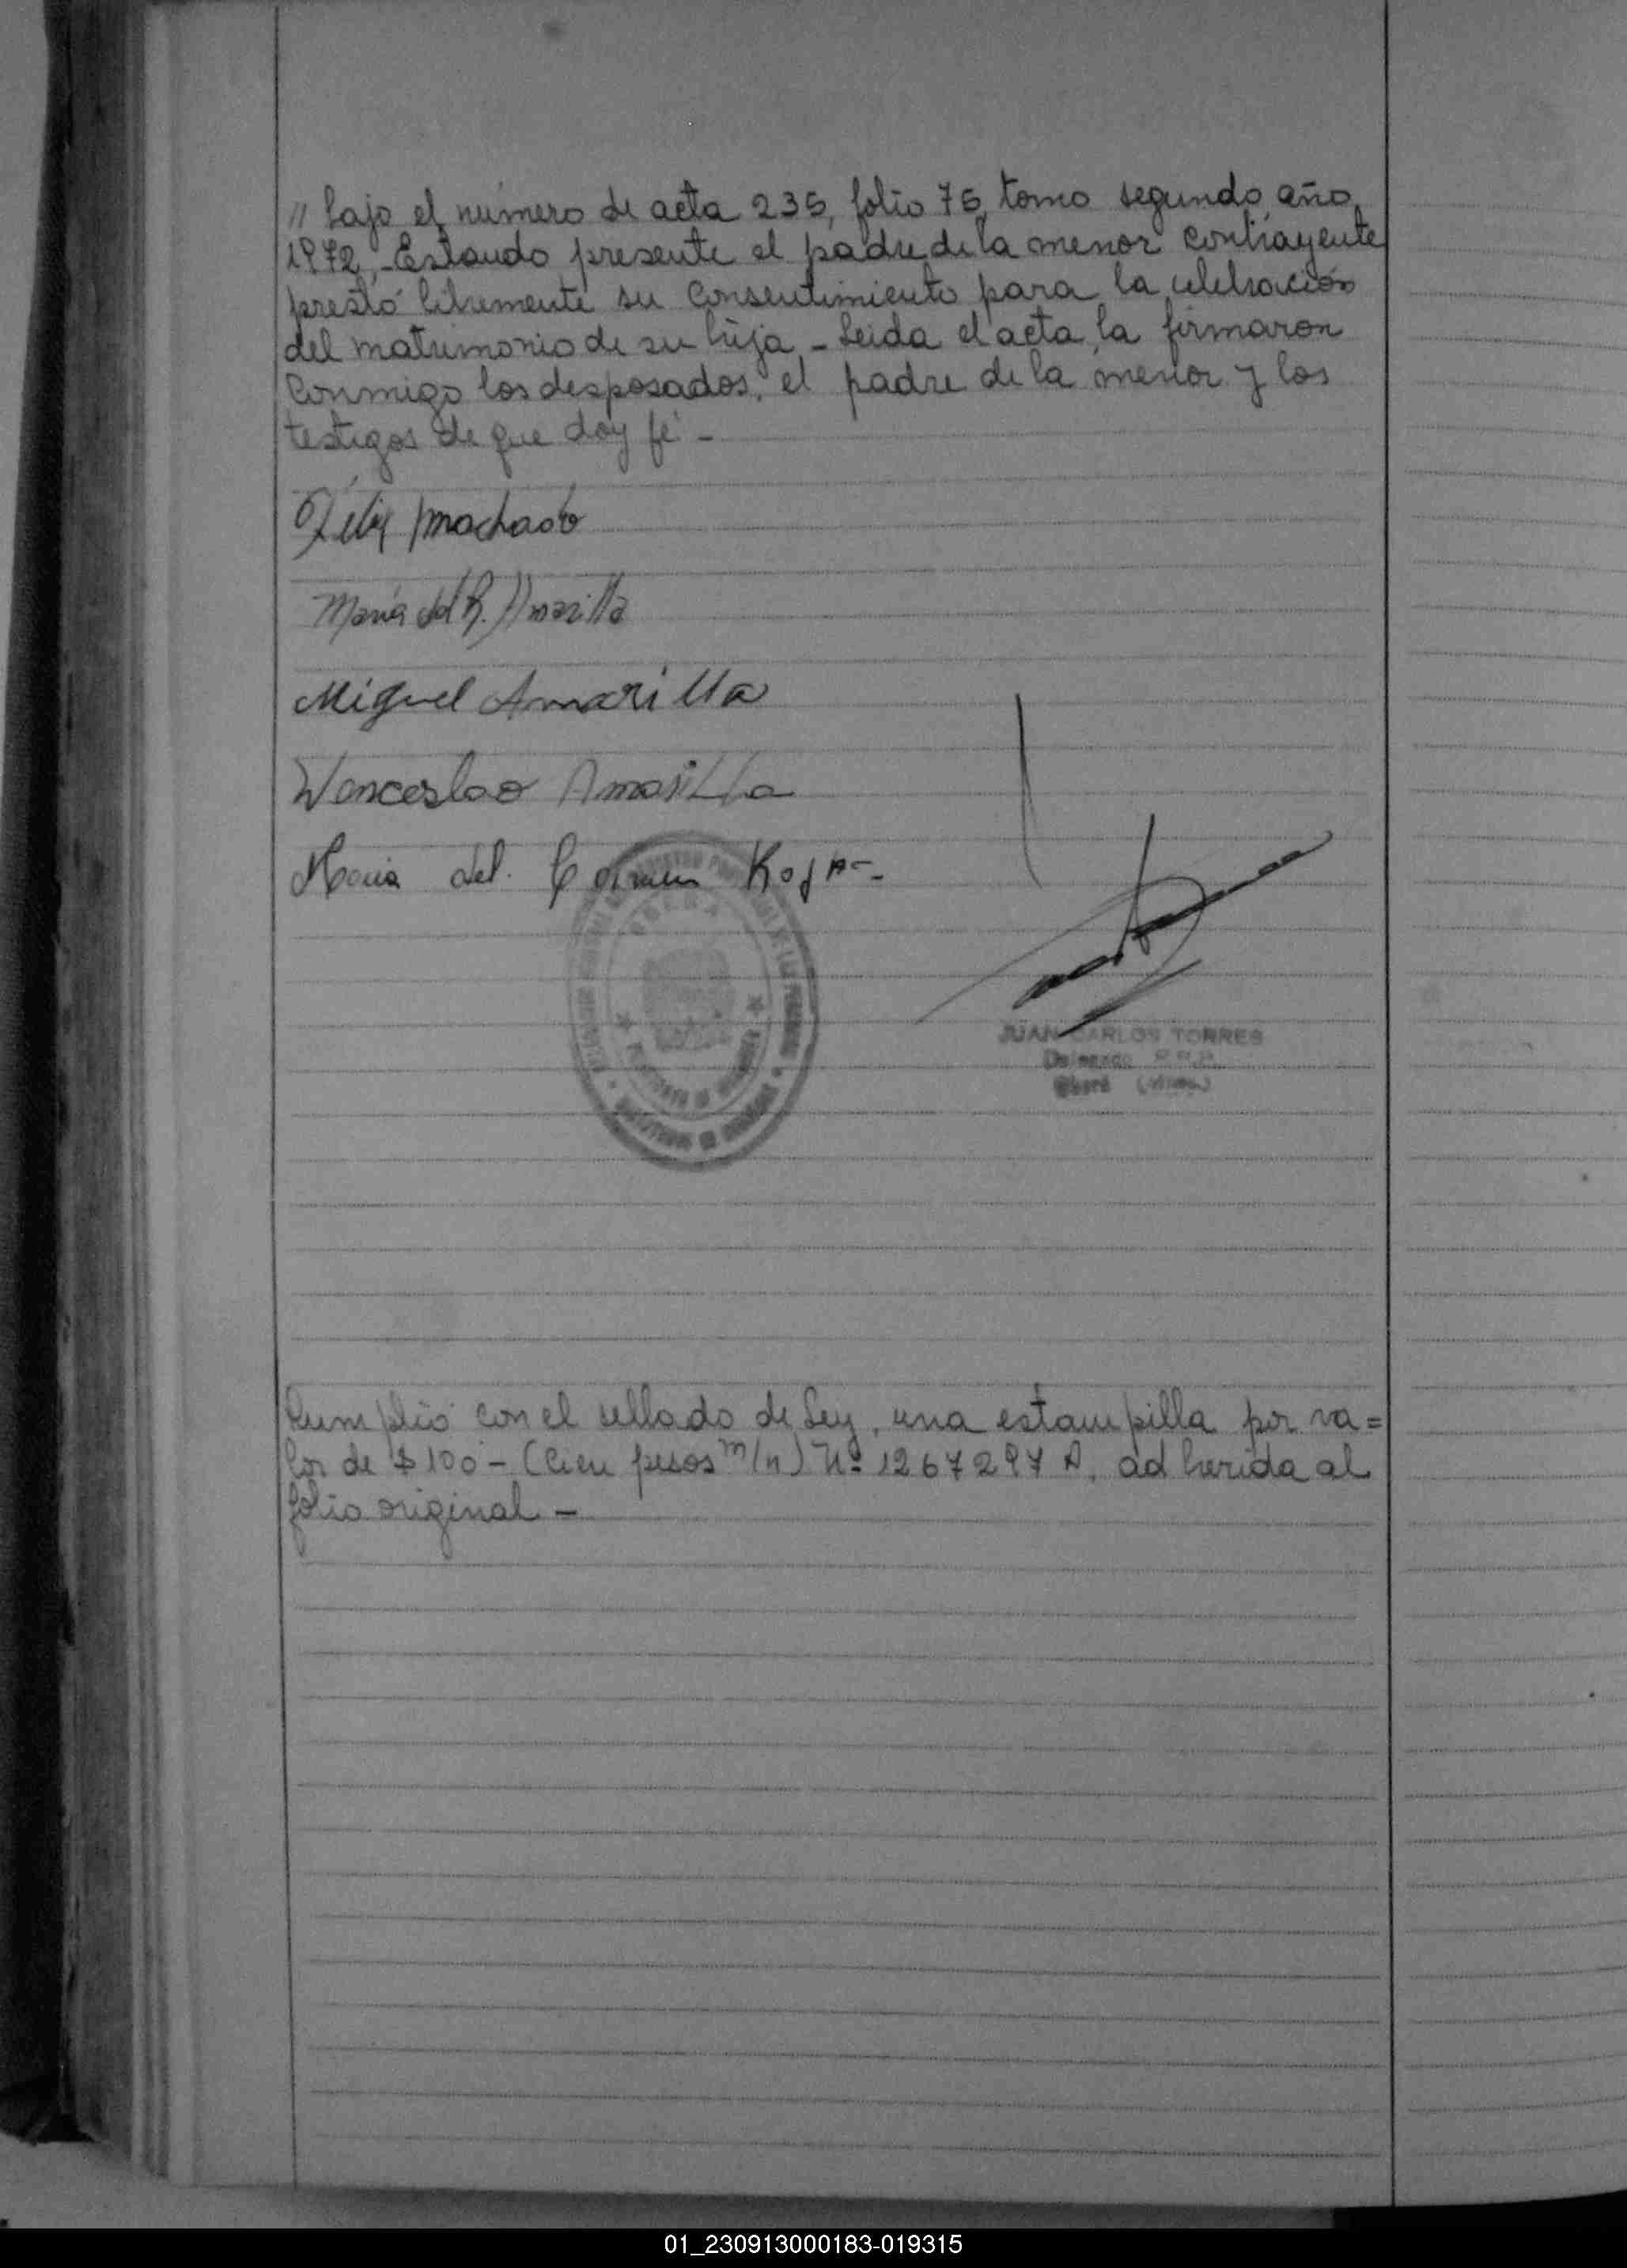 // bajo el número de acta 235, folio 75, tomo segundo, año
1972.- Estando presente el padre de la menor contrayente
prestó libremente su consentimiento para la celebración
del matrimonio de su hija - Leida el acta, la firmaron
conmigo los desposados, el padre de la menor y los
testigos de que doy fé -
Félix Machado
María del R. Amarilla
Miguel Amarilla
Wenceslao Amarilla
Maria del Carmen
JUAN CARLOS TORRES
Delegado
Oberá
Cumplió con el sellado de Ley, una estampilla por va=
lor de $ 100 - (Cien pesos m/n) Nº 1267297 A, adherida al
folio original -
01_230913000183-019315